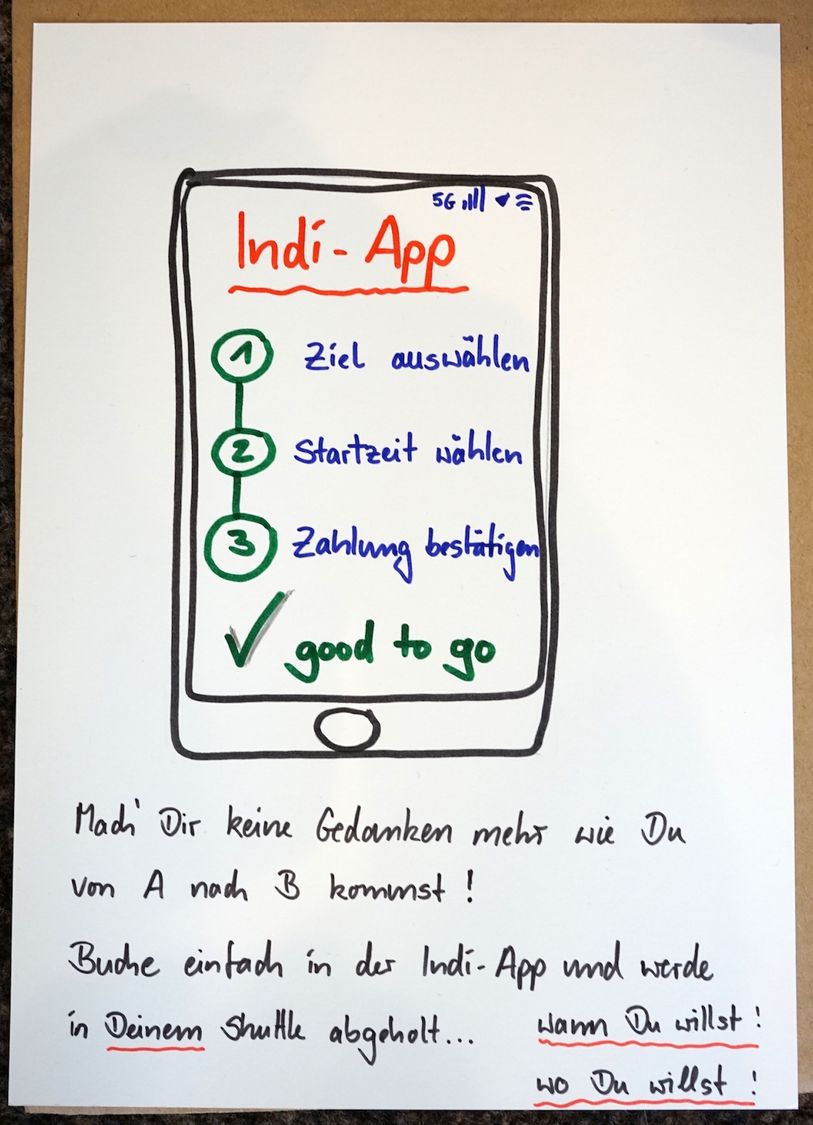 5G
Indi-App
1 Ziel auswählen
2 Startzeit wählen
3 Zahlung bestätigen
✓ good to go
Mach' Dir keine Gedanken mehr wie Du
von A nach B kommst!
Buche einfach in der Indi-App und werde
in Deinem Shuttle abgeholt... wann Du willst!
wo Du willst!